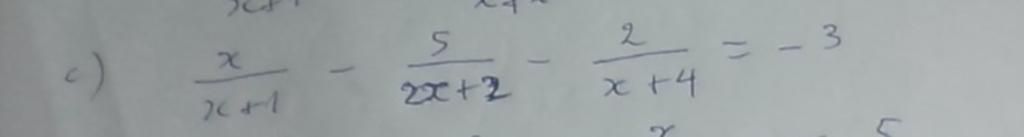 c) x/(x+1) - 5/(2x+2) - 2/(x+4) = -3